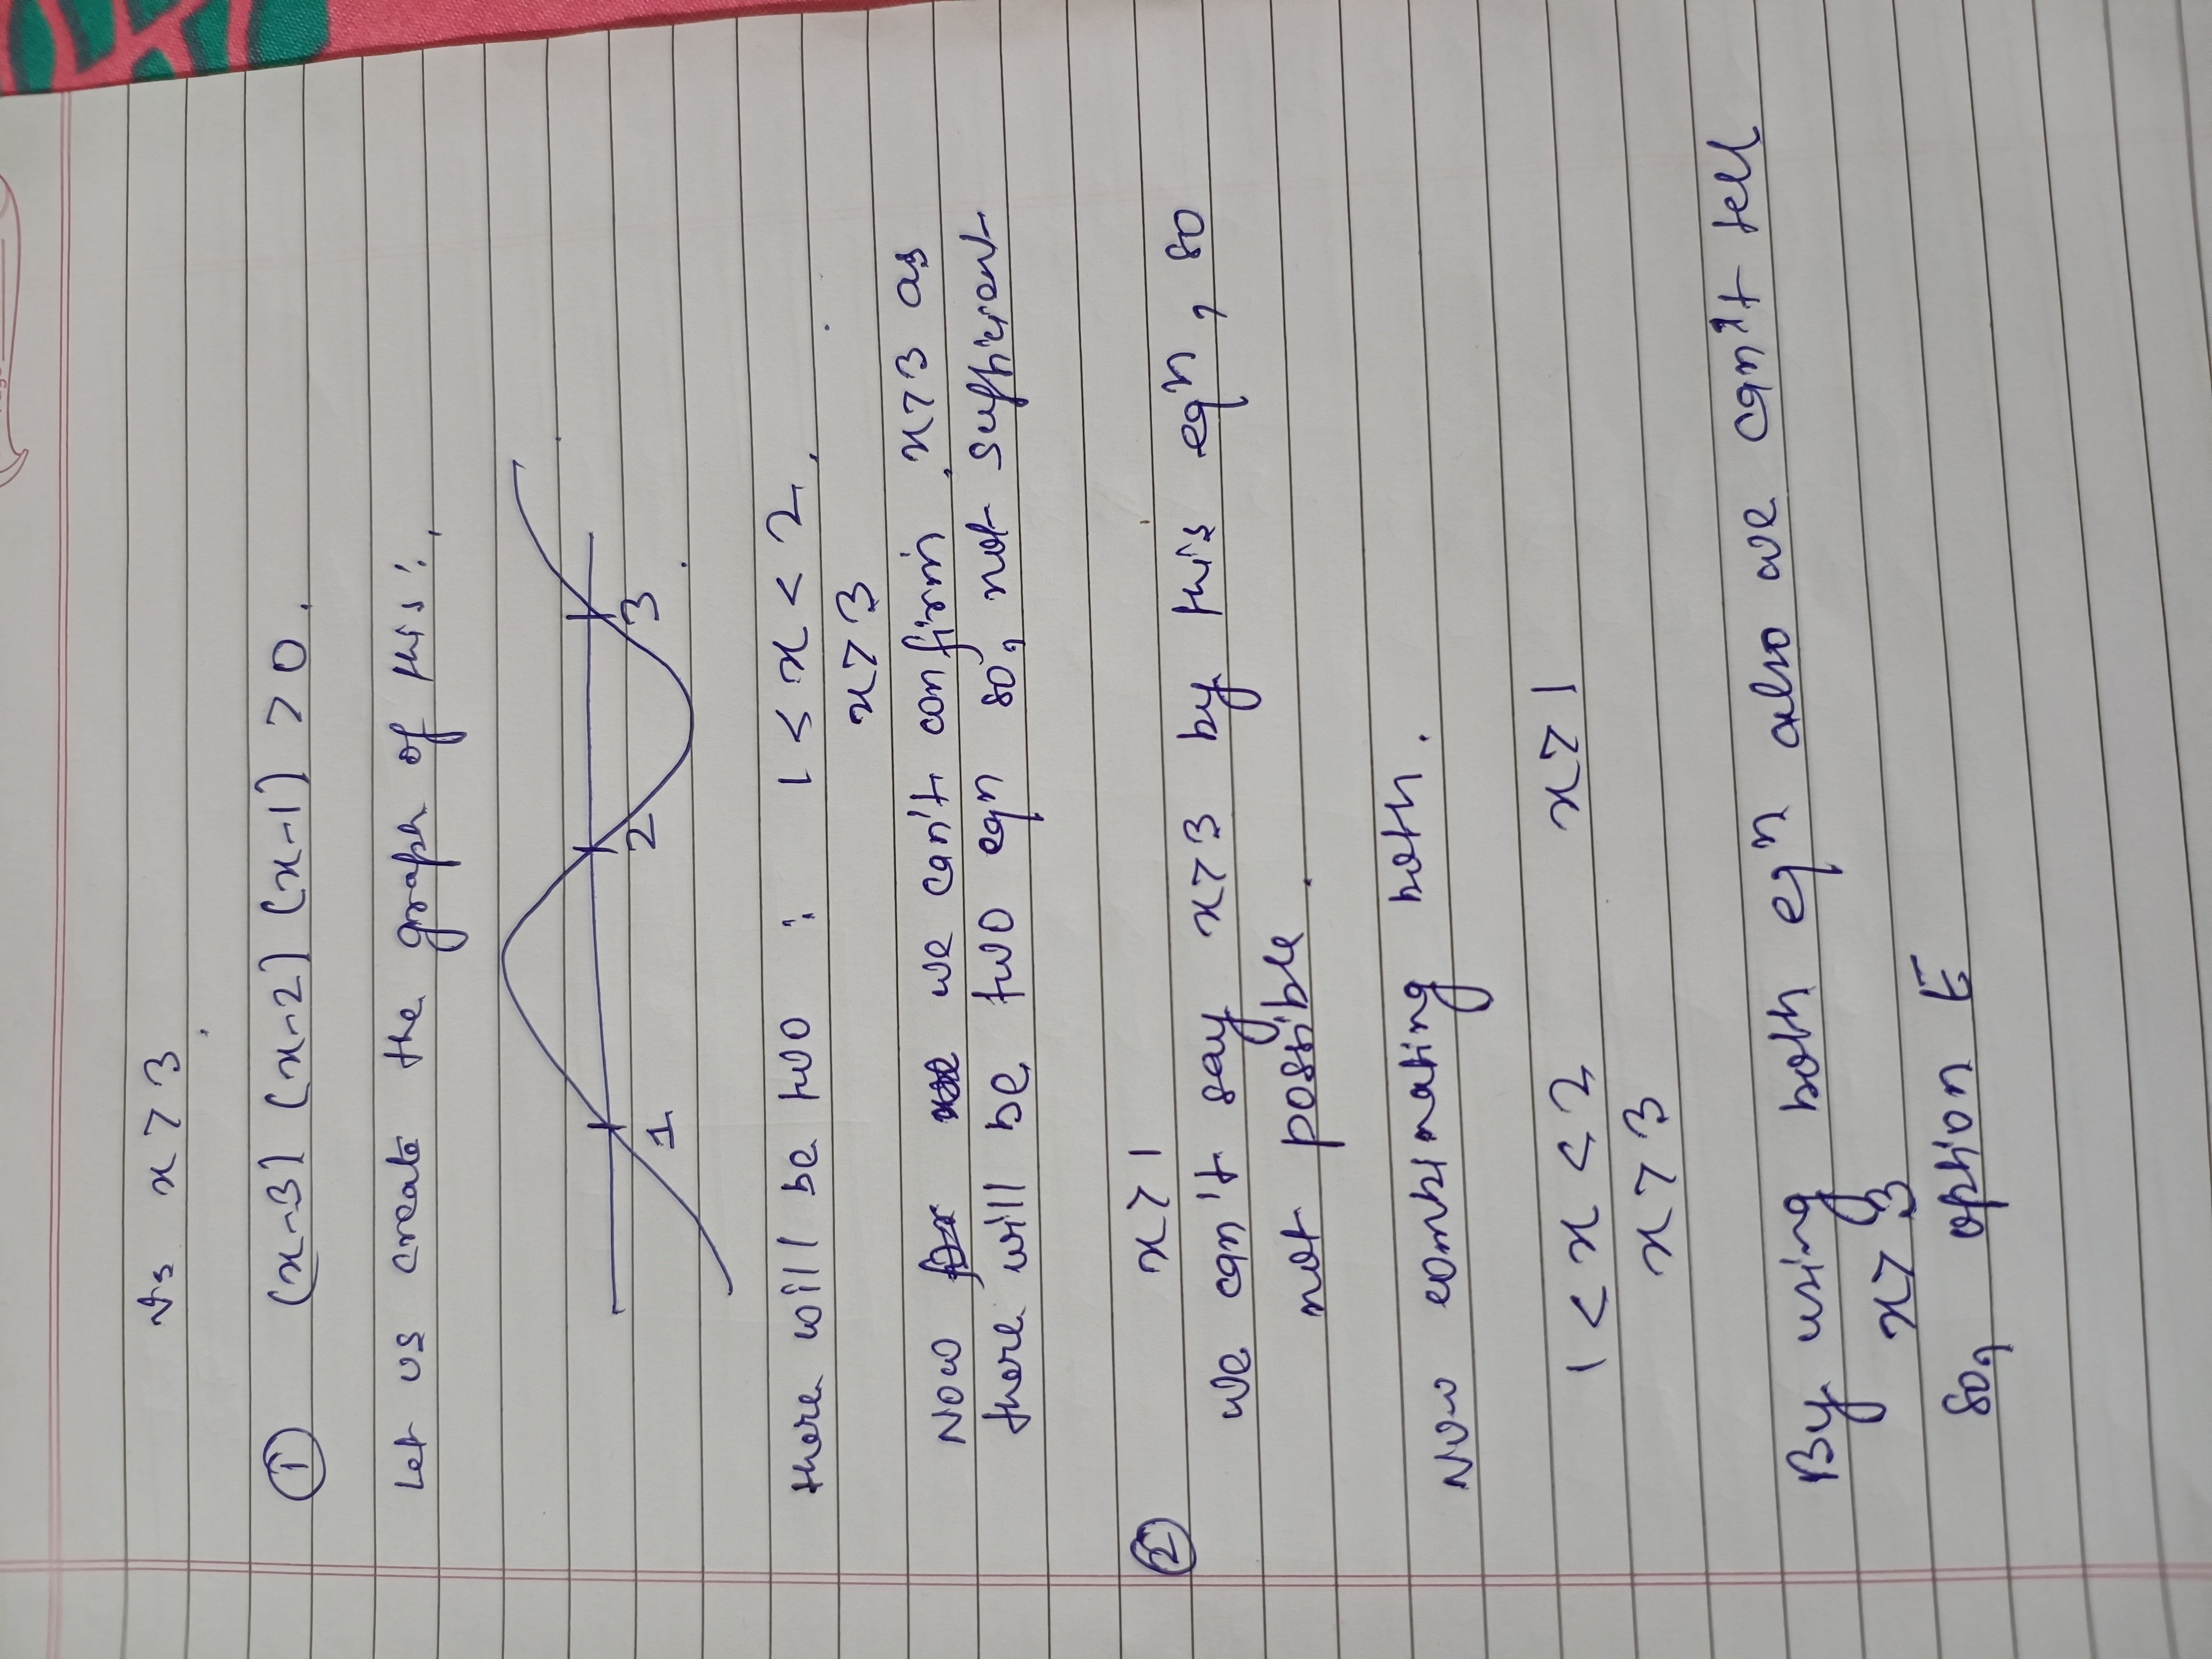 Is x > 3
① (x-3) (x-2) (x-1) > 0.
Let us create the graph of this:
1 2 3
there will be two : 1 < x < 2,
x > 3
Now we can't confirm x > 3 as
there will be two eqn so, not sufficient
② x > 1
we can't say x > 3 by this eqn, so
not possible
Now combinating both.
1 < x < 2 x > 1
x > 3
By using both eqn also we can't tell
x > 3
so, option E